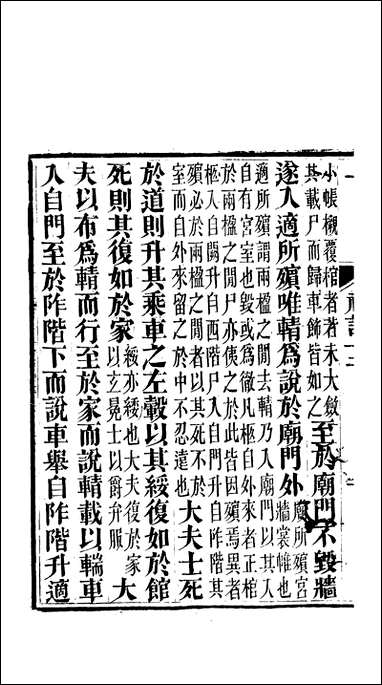 小帳櫬覆棺者若未大斂
其載尸而歸車飾皆如之
至於廟門不毀牆
遂入適所殯唯輤爲說於廟門外
廟所殯宮
牆裳帷也
適所殯謂兩楹之間去輤乃入廟門以其入
自有宮室也毀或爲徹凡柩自外來者正棺
於兩楹之間尸亦侇之於此皆因殯焉異者
柩入自闕升自西階尸入自門升自阼階其
殯必於兩楹之間者以其死不於
室而自外來留之於中不忍遠也
大夫士死
於道則升其乘車之左轂以其綏復如於館
死則其復如於家
綏亦緌也大夫復於家
以玄冕士以爵弁服
大
夫以布爲輤而行至於家而說輤載以輲車
入自門至於阼階下而說車舉自阼階升適